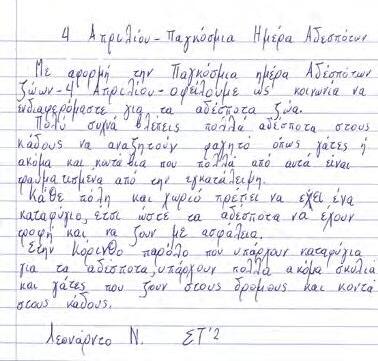 4 Απριλίου - Παγκόσμια Ημέρα Αδεσπότων
Με αφορμή την Παγκόσμια ημέρα Αδέσπότων
ζώων - 4 Απριλίου - οφείλουμε ως κοινωνία να
ενδιαφερόμαστε για τα αδέσποτα ζώα.
Πολύ συχνά βλέπεις πολλά αδέσποτα στους
κάδους να αναζητούν φαγητό όπως γάτες ή
ακόμα και κουτάβια που πολλά από αυτά είναι
τραυματισμένα από την εγκατάλειψη.
Κάθε πόλη και χωριό πρέπει να έχει ένα
καταφύγιο, έτσι ώστε τα αδέσποτα να έχουν
τροφή και να ζουν με ασφάλεια.
Στην Κόρινθο παρόλο που υπάρχουν καταφύγια
για τα αδέσποτα, υπάρχουν πολλά ακόμα σκυλιά
και γάτες που ζουν στους δρόμους και κοντά
στους κάδους.
Λεονάρντο Ν. ΣΤ'2